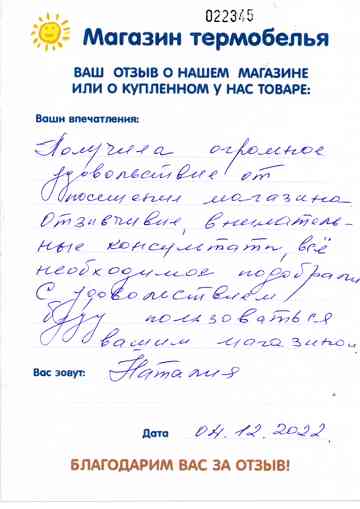 022345
Магазин термобелья
ВАШ ОТЗЫВ О НАШЕМ МАГАЗИНЕ
ИЛИ О КУПЛЕННОМ У НАС ТОВАРЕ:
Ваши впечатления:
Получила огромное
удовольствие от
посещения магазина.
Отзывчивые, вниматель-
ные консультанты, всё
необходимое подобрали
С удовольствием
буду пользоваться
вашим магазином
Вас зовут: Наталия
Дата 04.12.2022.
БЛАГОДАРИМ ВАС ЗА ОТЗЫВ!